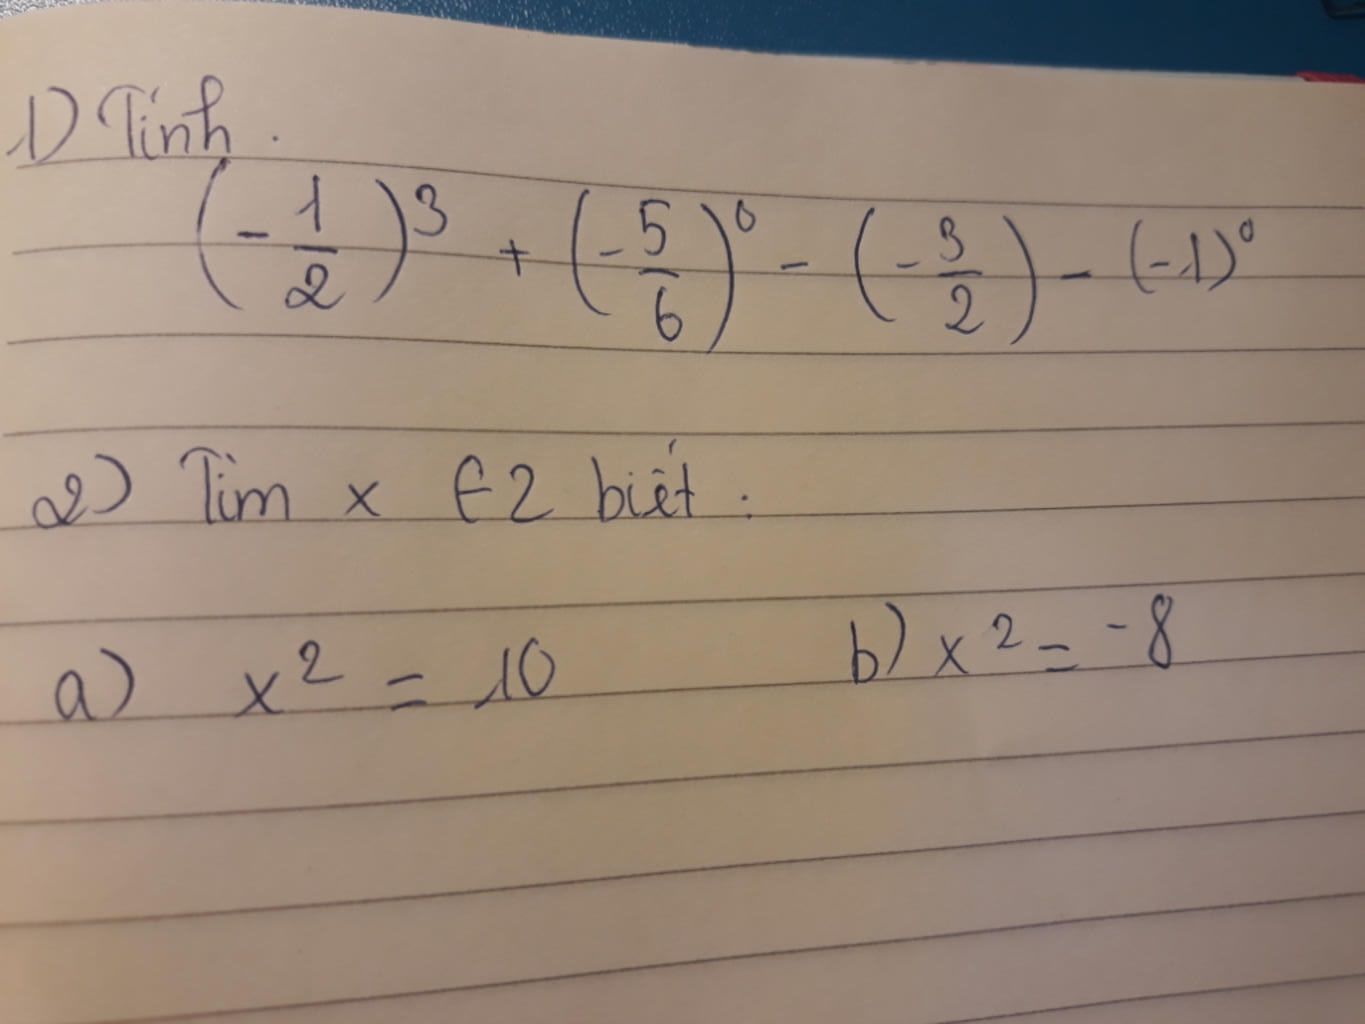 1) Tính.
(-1/2)³ + (-5/6)⁰ - (-3/2) - (-1)⁰
2) Tìm x ∈ Z biết:
a) x² = 10 b) x² = -8